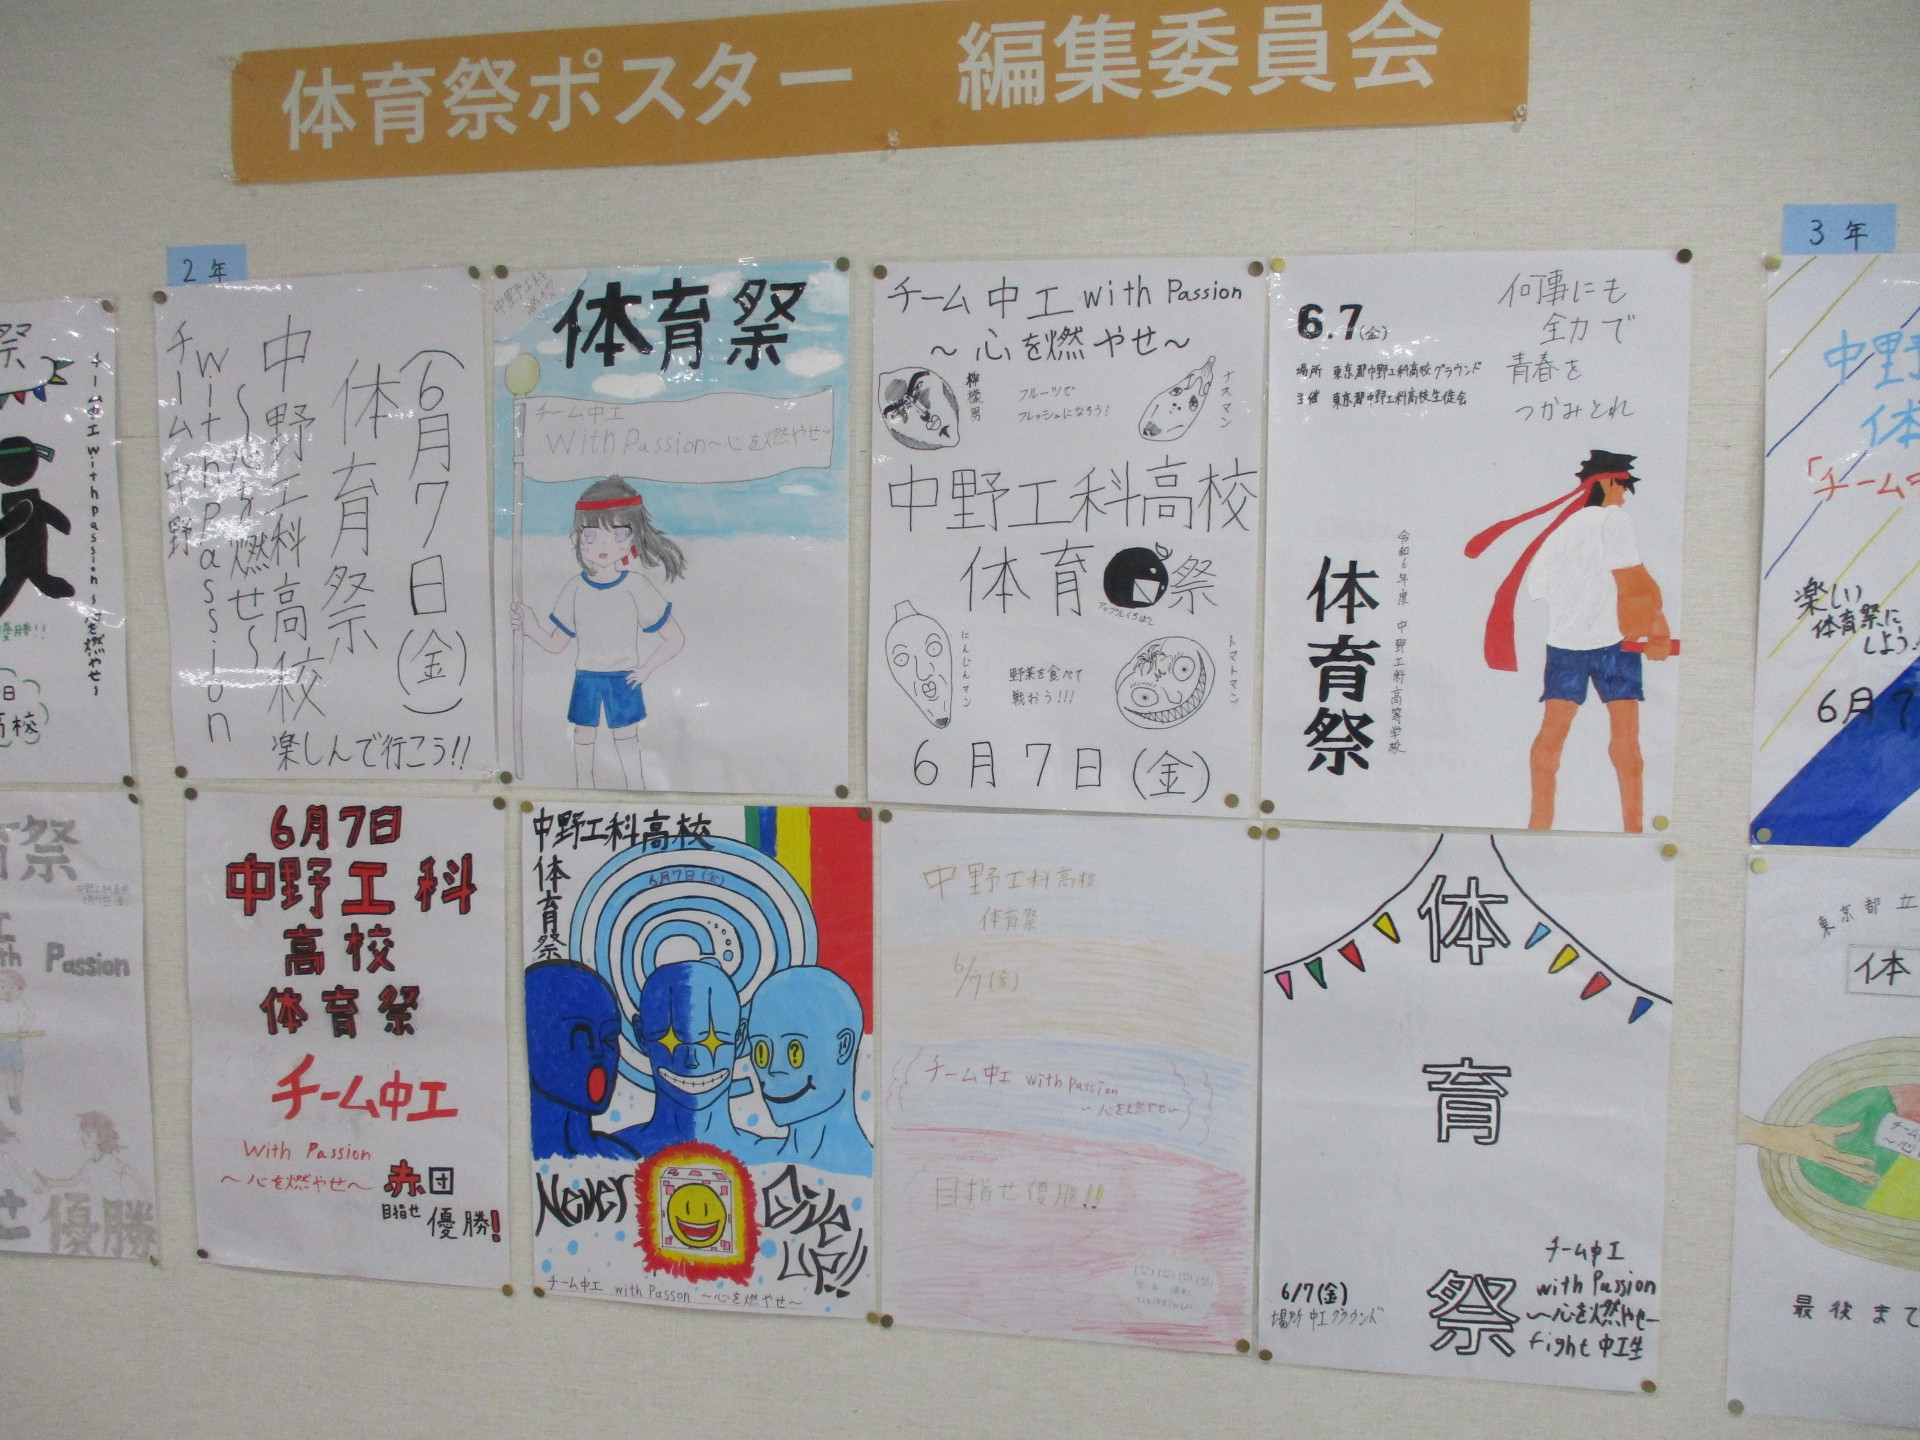 体育祭ポスター　編集委員会
2年
3年
(6月7日(金))
体育祭
中野工科高校
～心を燃やせ～
with passion
チーム中野
楽しんで行こう!!
体育祭
チーム中工
With Passion～心を燃やせ～
チーム中工 with Passion
～心を燃やせ～
檸檬男
フルーツで
フレッシュになろう!
ナスマン
中野工科高校
体育祭
にんじんマン
野菜を食べて
戦おう!!!
トマトマン
6月7日(金)
6.7(金)
場所 東京都中野工科高校グラウンド
主催 東京都中野工科高校生徒会
何事にも
全力で
青春を
つかみとれ
令和6年度 中野工科高等学校
体育祭
6月7日
中野工科
高校
体育祭
チーム中工
With Passion
～心を燃やせ～
赤団
目指せ
優勝!
中野工科高校
体育祭
6月7日(金)
Never
Give
UP!!
チーム中工 with Passon ～心を燃やせ～
中野工科高校
体育祭
6/7(金)
チーム中工 with passion
～心を燃やせ～
目指せ優勝!!
体
育
祭
6/7(金)
場所 中工グラウンド
チーム中工
with Passion
～心を燃やせ～
fight 中工生
祭
チーム中工 with passion ～心を燃やせ～
育祭
Passion
優勝
楽しい
体育祭に
しよう
6月7
東京都立
体
最後まで